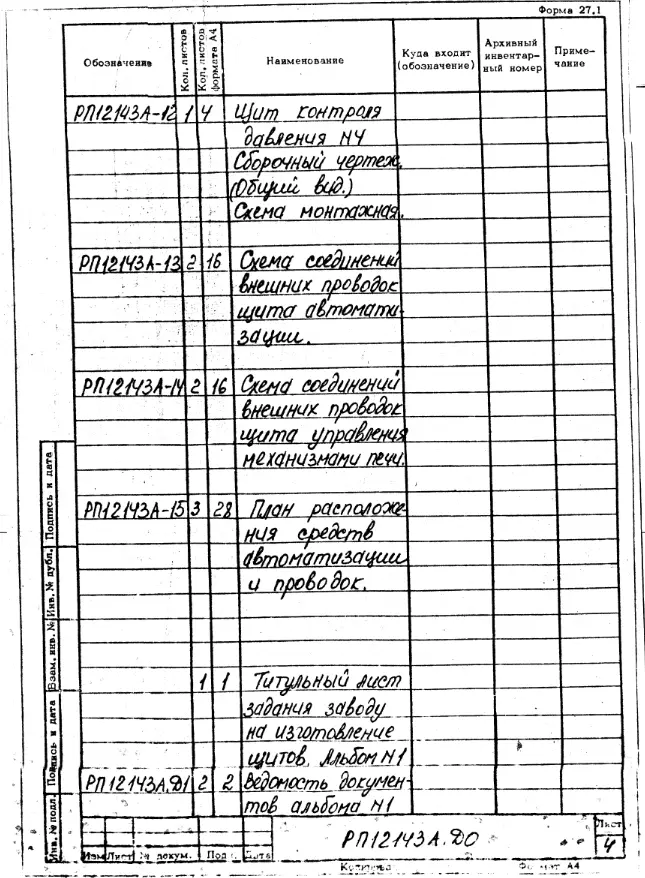 Форма 27.1
Обозначение
Кол. листов
Кол. листов формата А4
Наименование
Куда входит (обозначение)
Архивный инвентарный номер
Примечание
РП12143А-12 1 4 Щит контроля
давления N4
Сборочный чертеж.
(Общий вид.)
Схема монтажная.
РП12143А-13 2 16 Схема соединений
внешних проводок
щита автомати-
зации.
РП12143А-14 2 16 Схема соединений
внешних проводок
щита управления
механизмами печи.
РП12143А-15 3 28 План расположе-
ния средств
автоматизации
и проводок.
1 1 Титульный лист
задания заводу
на изготовление
щитов. Альбом N1
РП12143А.Д1 2 2 Ведомость докумен-
тов альбома N1
Инв. № подл.
Подпись и дата
Взам. инв. №
Инв. № дубл.
Подпись и дата
Изм Лист № докум. Под Дата
РП12143А.ДО
Лист
4
Формат А4